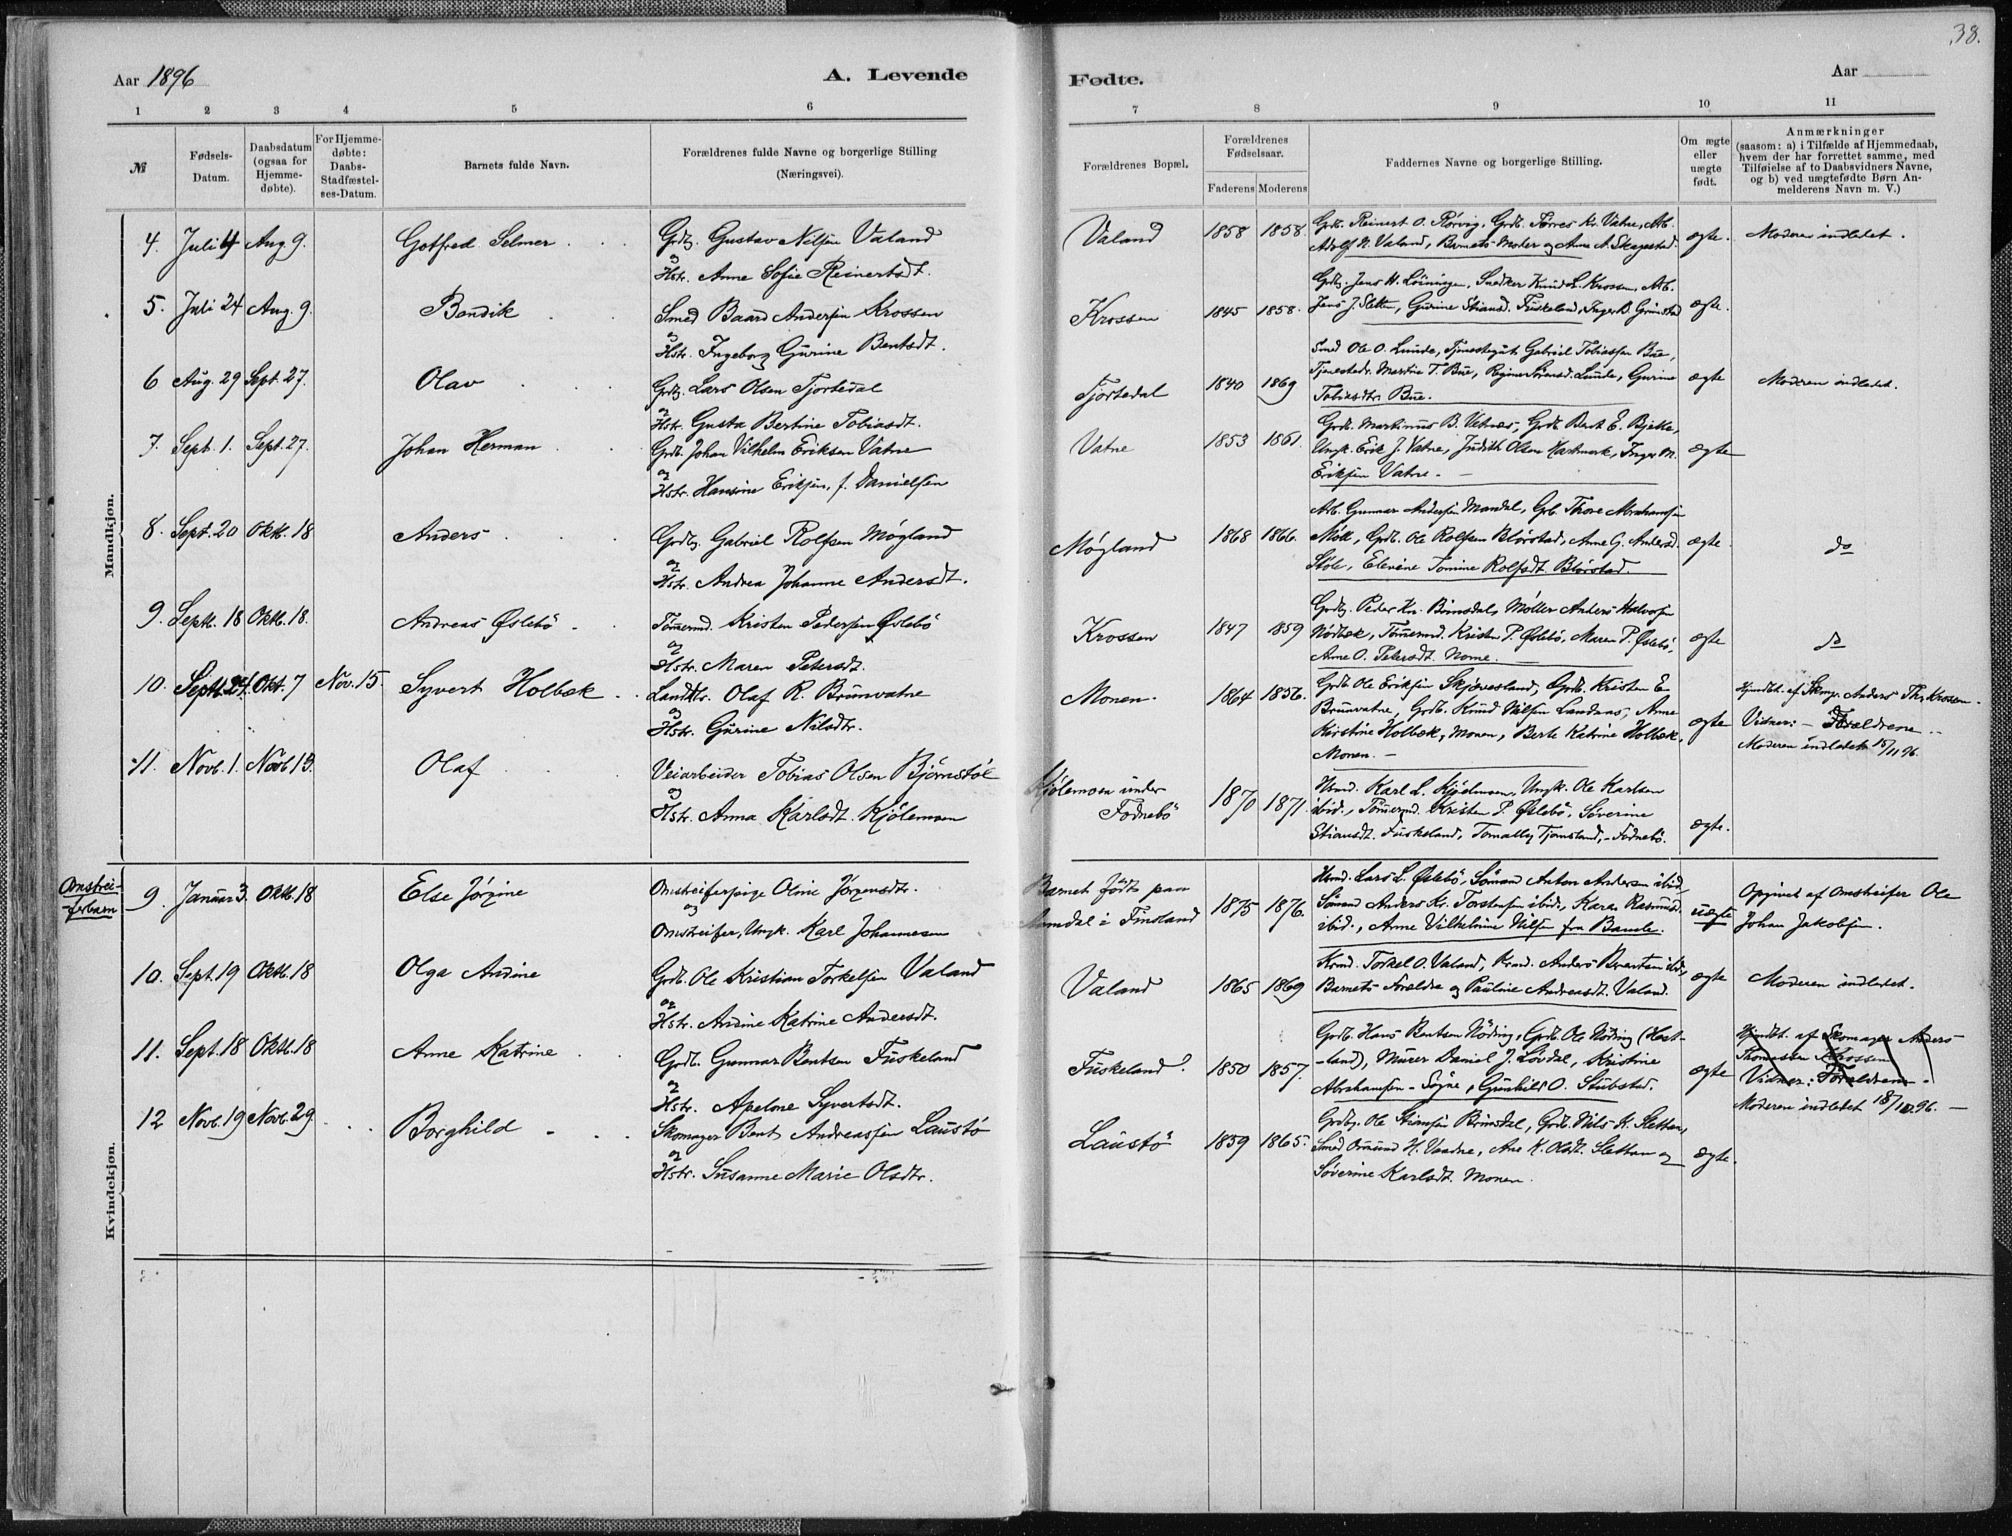 38.
Aar 1896
A. Levende
Fødte.
Aar
1 2 3 4 5 6 7 8 9 10 11
№
Fødsels-
Datum.
Daabsdatum
(ogsaa for
Hjemme-
døbte).
For Hjemme-
døbte:
Daabs-
Stadfæstel-
ses-Datum.
Barnets fulde Navn.
Forældrenes fulde Navne og borgerlige Stilling
(Næringsvei).
Forældrenes Bopæl.
Forældrenes
Fødselsaar.
Faderens Moderens
Faddernes Navne og borgerlige Stilling.
Om ægte
eller
uægte
født.
Anmærkninger
(saasom: a) i Tilfælde af Hjemmedaab,
hvem der har forrettet samme, med
Tilføielse af to Daabsvidners Navne,
og b) ved uægtefødte Børn An-
melderens Navn m. V.)
Mandkjøn.
4. Juli 4 Aug. 9. Gotfred Selmer
Grdb. Gustav Nilsen Valand
og
Hstr. Anne Sofie Reinertsdt.
Valand 1858 1858.
Grdb. Reinert O. Rørvig, Grdb. Torres Kr. Vatne, Arb.
Adolf N. Valand, Barnets Moder og Ane A. Skagestad.
ægte. Moderen indledet.
5. Juli 24 Aug. 9. Bendik
Smed Baard Andersen Krossen
og
Hstr. Ingeborg Gurine Bentsdt.
Krossen 1845 1858.
Grdb. Jens H. Løiningen, Snedker Knud L. Krossen, Arb.
Jens J. Sletten, Gurine Stiansd. Fuskeland, Inger B. Grimstad
ægte.
6 Aug. 29 Sept. 27. Olav
Grdb. Lars Olsen Fjortedal
og
Hstr. Gusta Bertine Tobiasdt.
Fjortedal 1840 1869
Smed Ole O. Lunde, Tjenestegut Gabriel Tobiassen Bue,
Tjenestedr. Martie T. Bue, Regine Sørensd. Lunde, Gurine
Tobiasdtr. Bue.
ægte Moderen indledet.
7. Sept. 1. Sept. 27. Johan Herman
Grdb. Johan Vilhelm Eriksen Vatne
og
Hstr. Hansine Eriksen, f. Danielsen
Vatne 1853 1861.
Grdb. Markinus B. Vetnes, Grdb. Bert E. Bjelke,
Ungk. Erik J. Vatne, Judith Olsen Hartmark, Inger M.
Eriksen Vatne. —
ægte
8. Sept. 20 Oktb. 18 Anders
Grdb. Gabriel Rolfsen Møgland
og
Hstr. Andrea Johanne Andersdt.
Møgland 1868 1866.
Arb. Gunnar Andersen Mandal, Grb. Thore Abrahamsen
Støle, Grdb. Ole Rolfsen Blørstad, Anne G. Andersd.
Støle, Elevine Tomine Rolfsdt. Blørstad.
ægte. do
9. Septb. 18 Oktb. 18. Andreas Øslebø
Tømmermd. Kristen Pedersen Øslebø
og
Hstr. Maren Petersdt.
Krossen 1847 1859
Grdb. Peder Kr. Brinsdal, Møller Anders Halvorsen
Nødbæk, Tømmermd. Kristen P. Øslebø, Maren P. Øslebø,
Anne O. Petersdt. Nome. —
ægte do
10. Septb. 24. Okt. 7 Nov. 15. Syvert Holbæk
Landhdl. Olaf R. Brunvatne
og
Hstr. Gurine Nilsdtr.
Monen. 1864 1856.
Grdb. Ole Eriksen Skjævesland, Grdb. Kristen E.
Brunvatne, Grdb. Knud Nilsen Landaas, Anne
Kirstine Holbæk, Monen, Berte Katrine Holbæk,
Monen. —
ægte
Hjmdbt. af Skmgr. Anders Ths. Krossen.
Vidner: — Forældrene
Moderen indledet 15/11 96.
11. Novb. 1. Novb. 15. Olaf
Veiarbeider Tobias Olsen Bjørnstøl
og
Hstr. Anna Karlsdt. Kjølemoen
Kjølemoen under
Fodnebø
1870 1871.
Hsmd. Karl L. Kjølemoen, Ungk. Ole Karlsen
ibid., Tømmermd. Kristen P. Øslebø, Søverine
Stiansdt. Fuskeland, Tomally Tjomsland, – Fodnebø.
ægte.
Kvindekjøn.
Omstrei-
ferbarn
9. Januar 3. Oktb. 18 Else Jørgine
Omstreiferpige Oline Jørgensdtr.
og
Omstreifer, Ungk. Karl Johannesen
Barnet født paa
Aamdal i Finsland
1875 1876.
Hsmd. Lars L. Øslebø, Sømand Anton Andersen ibid,
Sømand Anders Kr. Torstensen ibid., Karen Rasmusd.
ibid., Anne Vilhelmine Nilsen fra Bamle.
uægte
Opgivet af Omstreifer Ole
Johan Jakobsen.
10. Sept. 19 Oktb. 18 Olga Andine
Grdb. Ole Kristian Torkelsen Valand
og
Hstr. Andine Katrine Andersdt.
Valand 1865 1869
Krmd. Torkel O. Valand, Krmd. Anders Braaten ibid,
Barnets Forældre og Pauline Andreasdt. Valand.
ægte Moderen indledet.
11. Sept. 18 Oktb. 18 Anne Katrine
Grdb. Gunnar Bentsen Fuskeland
og
Hstr. Apelone Syvertsdt.
Fuskeland. 1850 1857.
Grdb. Hans Bentsen Nøding, Grdb. Ole Nøding (Høst-
-land), Murer Daniel J. Løvdal, Kristine
Abrahamsen – Søgne, Gunhild O. Stubstad.
ægte
Hjmdbt. af Skomager Anders
Thomassen Krossen
Vidner: Forældrene.
Moderen indledet 18/10 96. —
12 Novb. 19 Novb. 29. Borghild
Skomager Bent Andreassen Laustø
og
Hstr. Susanne Marie Olsdtr.
Laustø 1859 1865.
Grdb. Ole Stiansen Brinsdal, Grdb. Nils K. Slettan,
Smed Omund H. Vaadne, Ane K. Olsdt. Slettan og
Søverine Karlsdt. Monen.
ægte.